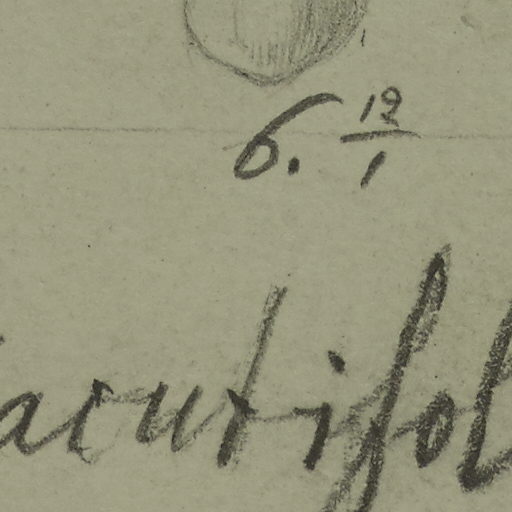 6. 12/1
acutifol